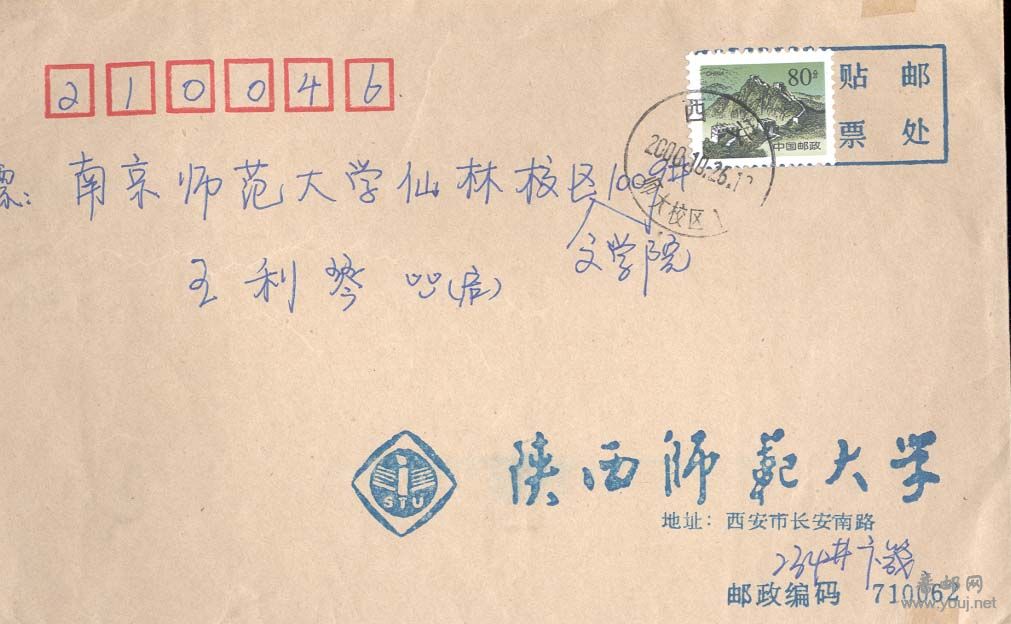 CHINA 80分
贴 邮
票 处
中国邮政
210046
西
2000.10.26.1
大校区
南京师范大学仙林校区100
文学院
王利琴
STU
陕西师范大学
地址：西安市长安南路
234#
邮政编码 710062
www.youj.net